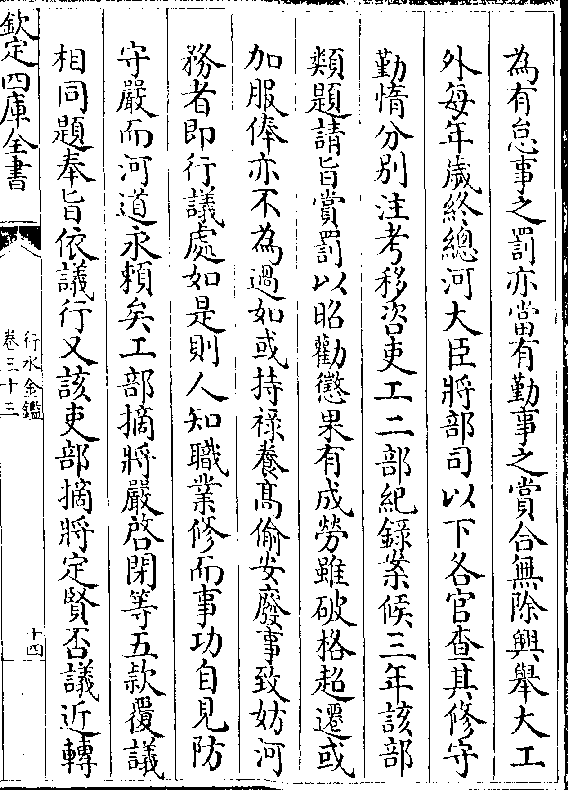 為有怠事之罰亦當有勤事之賞合無除興舉大工
外每年歲終總河大臣將部司以下各官查其修守
勤惰分别注考移咨吏工二部紀録案候三年該部
類題請旨賞罰以昭勸懲果有成勞雖破格超遷或
加服俸亦不為過如或持禄養髙偷安廢事致妨河
務者即行議處如是則人知職業修而事功自見防
守嚴而河道永賴矣工部摘將嚴啓閉等五款覆議
相同題奉旨依議行又該吏部摘將定賢否議近轉
欽定四庫全書
行水金鑑
卷三十三
十四